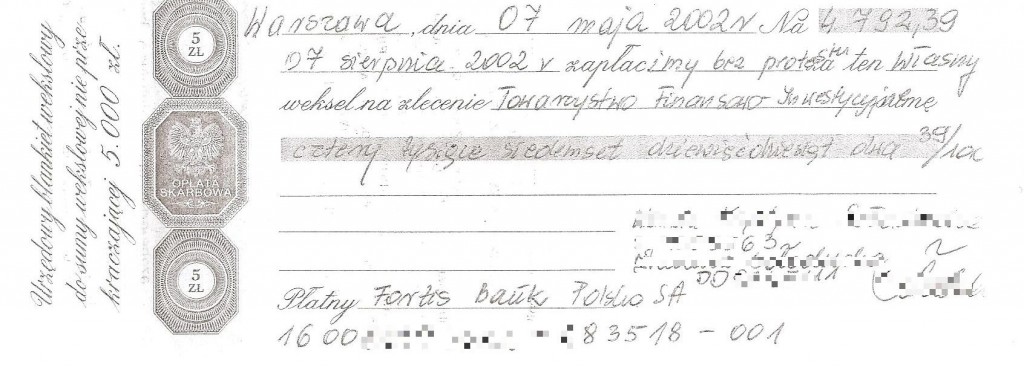 Urzędowy blankiet wekslowy
do sumy wekslowej nie prze-
kraczającej 5.000 zł.
5
ZŁ
OPŁATA
SKARBOWA
5
ZŁ
Warszawa, dnia 07 maja 2002 r Na 4 792,39
07 sierpnia 2002 r zapłacimy bez protestu ten własny
weksel na zlecenie Towarzystwo Finansowo Inwestycyjne
cztery tysiące siedemset dziewięćdziesiąt dwa 39/100
Płatny Fortis Bank Polska SA
1600 83518 - 001